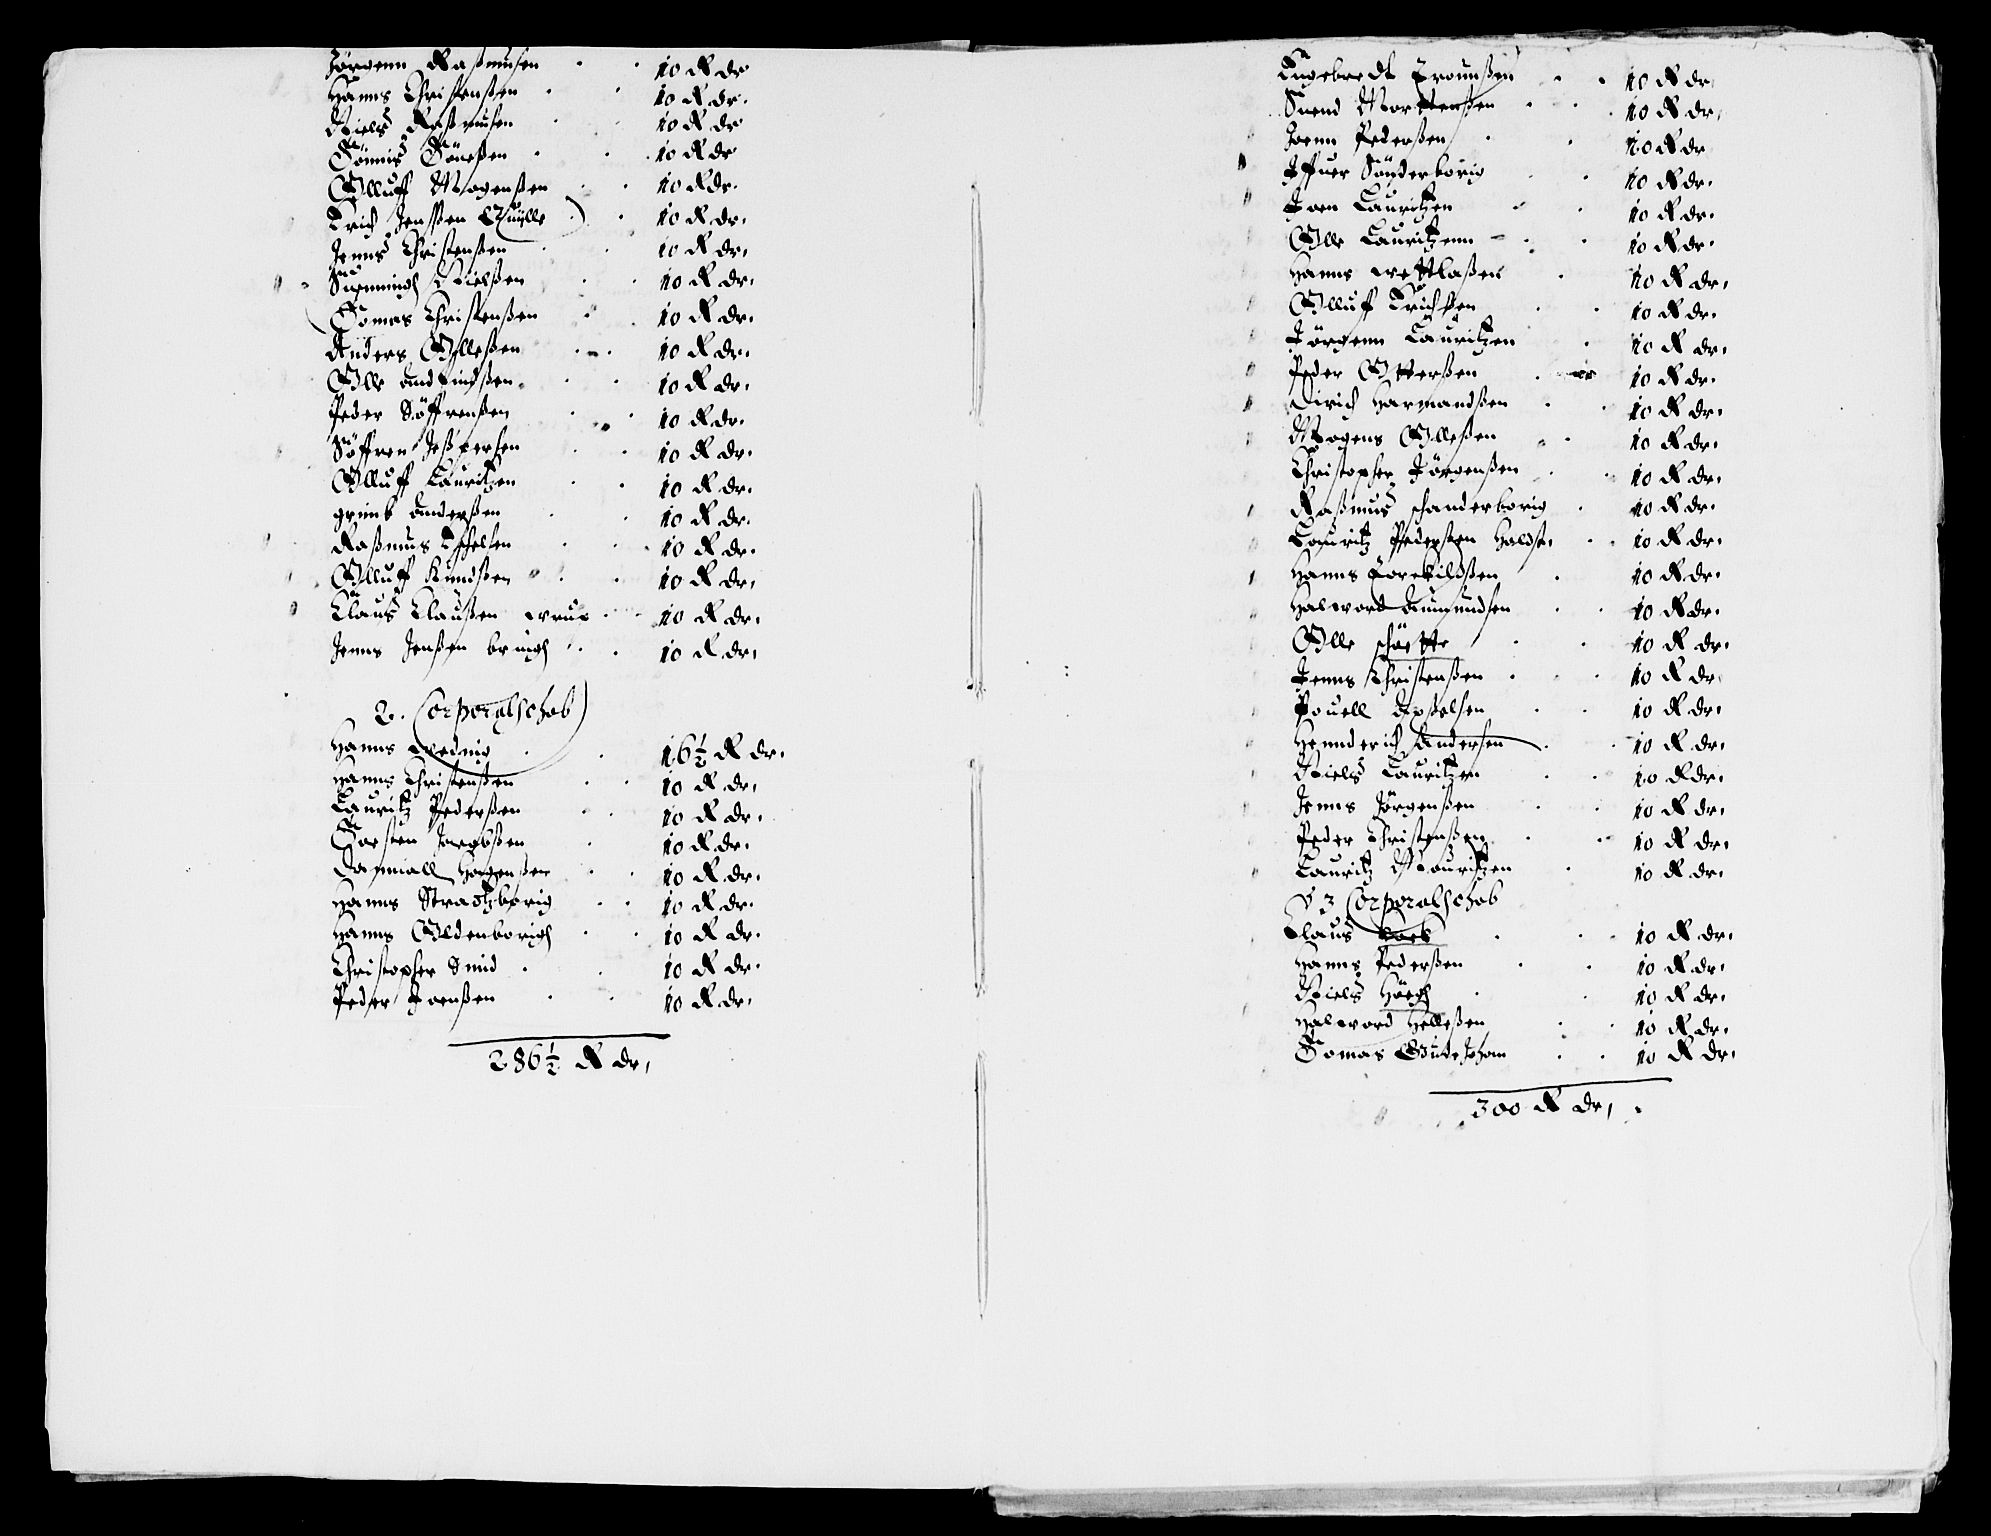 Jörgenn Raßmußen 10 R dr
Hanns Christenßen 10 R dr.
Niels Raßmußen 10 R dr
Tönnis Töneßen 10 R dr
Olluff Mogenßen 10 R dr.
Erich Jenßen 10 R dr.
Jenns Christenßen 10 R dr,
Nielßen 10 R dr.
Tomas Christenßen 10 R dr.
Anders Olleßen 10 R dr.
Olle Amundßen 10 R dr.
Peder Söffrenßen 10 R dr.
Söffren Jeßpersen 10 R dr.
Olluff Lauritzen 10 R dr.
anderßen 10 R dr.
Raßmus 10 R dr.
Olluff Knudßen 10 R dr,
Claus Claußen 10 R dr,
Jenns Jenßen 10 R dr,
2. Corporalschab
Hanns 16½ R dr.
Hanns Christenßen 10 R dr,
Lauritz Pederßen 10 R dr.
Torsten Jacobßen 10 R dr.
10 R dr.
Hanns 10 R dr.
Hanns Oldenborigh 10 R dr.
Christopher Smid 10 R dr.
Peder Joenßen 10 R dr.
286½ R dr,
Engebredt 10 R dr,
Suend Mortenßen 10 R dr,
Joenn Pederßen 10 R dr
Iffuer Sönderborig 10 R dr.
Joen Lauritzen 10 R dr.
Olle Lauritzenn 10 R dr.
Hanns 10 R dr,
Olluff Erichßen 10 R dr.
Jörgenn Lauritzen 10 R dr,
Peder Otterßen 10 R dr.
Dirich Harmandßen 10 R dr.
Mogens Olleßen 10 R dr.
Christopher Jörgenßen 10 R dr,
Raßmus schanderborig 10 R dr.
Lauritz Pedersen 10 R dr.
Hanns Torekildßen 10 R dr.
Halword Aumundsen 10 R dr.
Olle 10 R dr,
Jenns Christenßen 10 R dr
Pouell 10 R dr.
Hennderich Andersen 10 R dr,
Niels Lauritzen 10 R dr.
Jenns Jörgenßen 10 R dr,
Peder Christenßen 10 R dr,
Lauritz Mouritzen 10 R dr.
3 Corporalschab
Claus 10 R dr.
Hanns Pederßen 10 R dr.
Niels Höegh 10 R dr.
Halword Helleßen 10 R dr.
Tomas 10 R dr,
300 R dr,